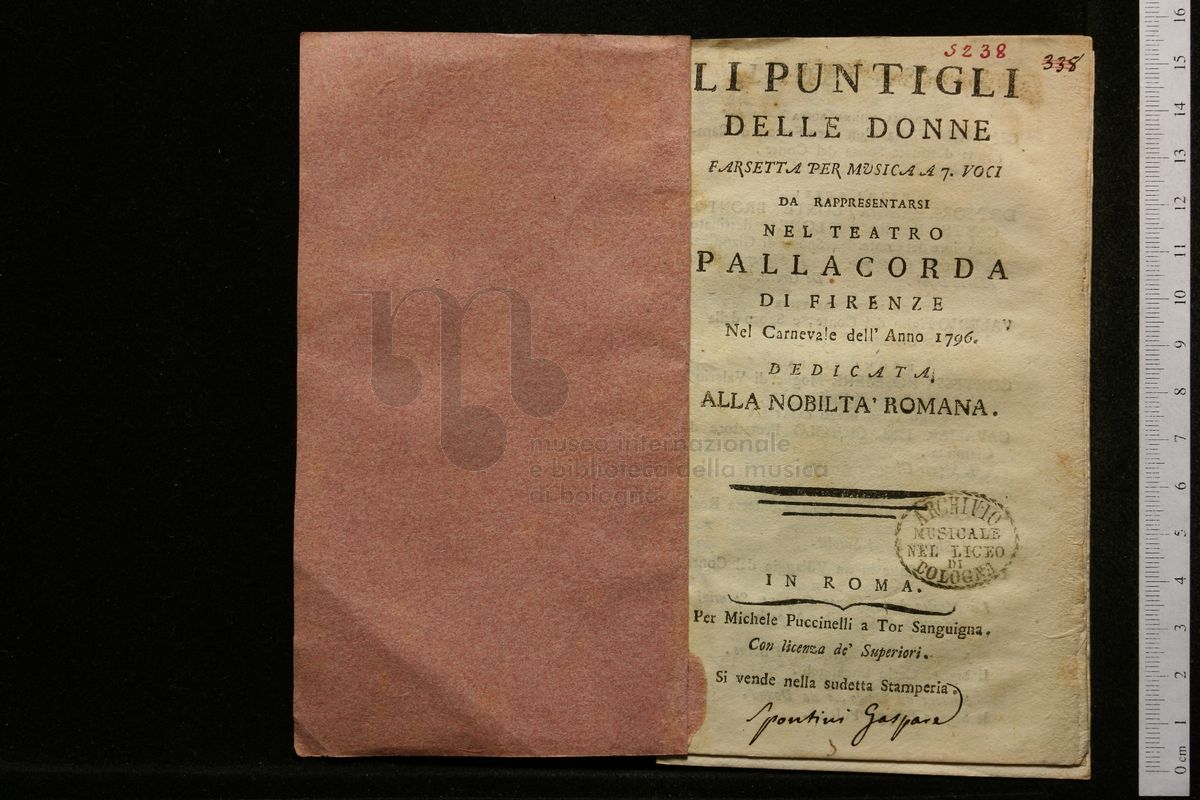 5238
338
LI PUNTIGLI
DELLE DONNE
FARSETTA PER MUSICA A 7. VOCI
DA RAPPRESENTARSI
NEL TEATRO
PALLACORDA
DI FIRENZE
Nel Carnevale dell' Anno 1796.
DEDICATA
ALLA NOBILTA' ROMANA.
museo internazionale
e biblioteca della musica
di bologna
ARCHIVIO
MUSICALE
NEL LICEO
DI
BOLOGNA
IN ROMA.
Per Michele Puccinelli a Tor Sanguigna.
Con licenza de' Superiori.
Si vende nella sudetta Stamperia.
Spontini Gaspare
0 cm 1 2 3 4 5 6 7 8 9 10 11 12 13 14 15 16